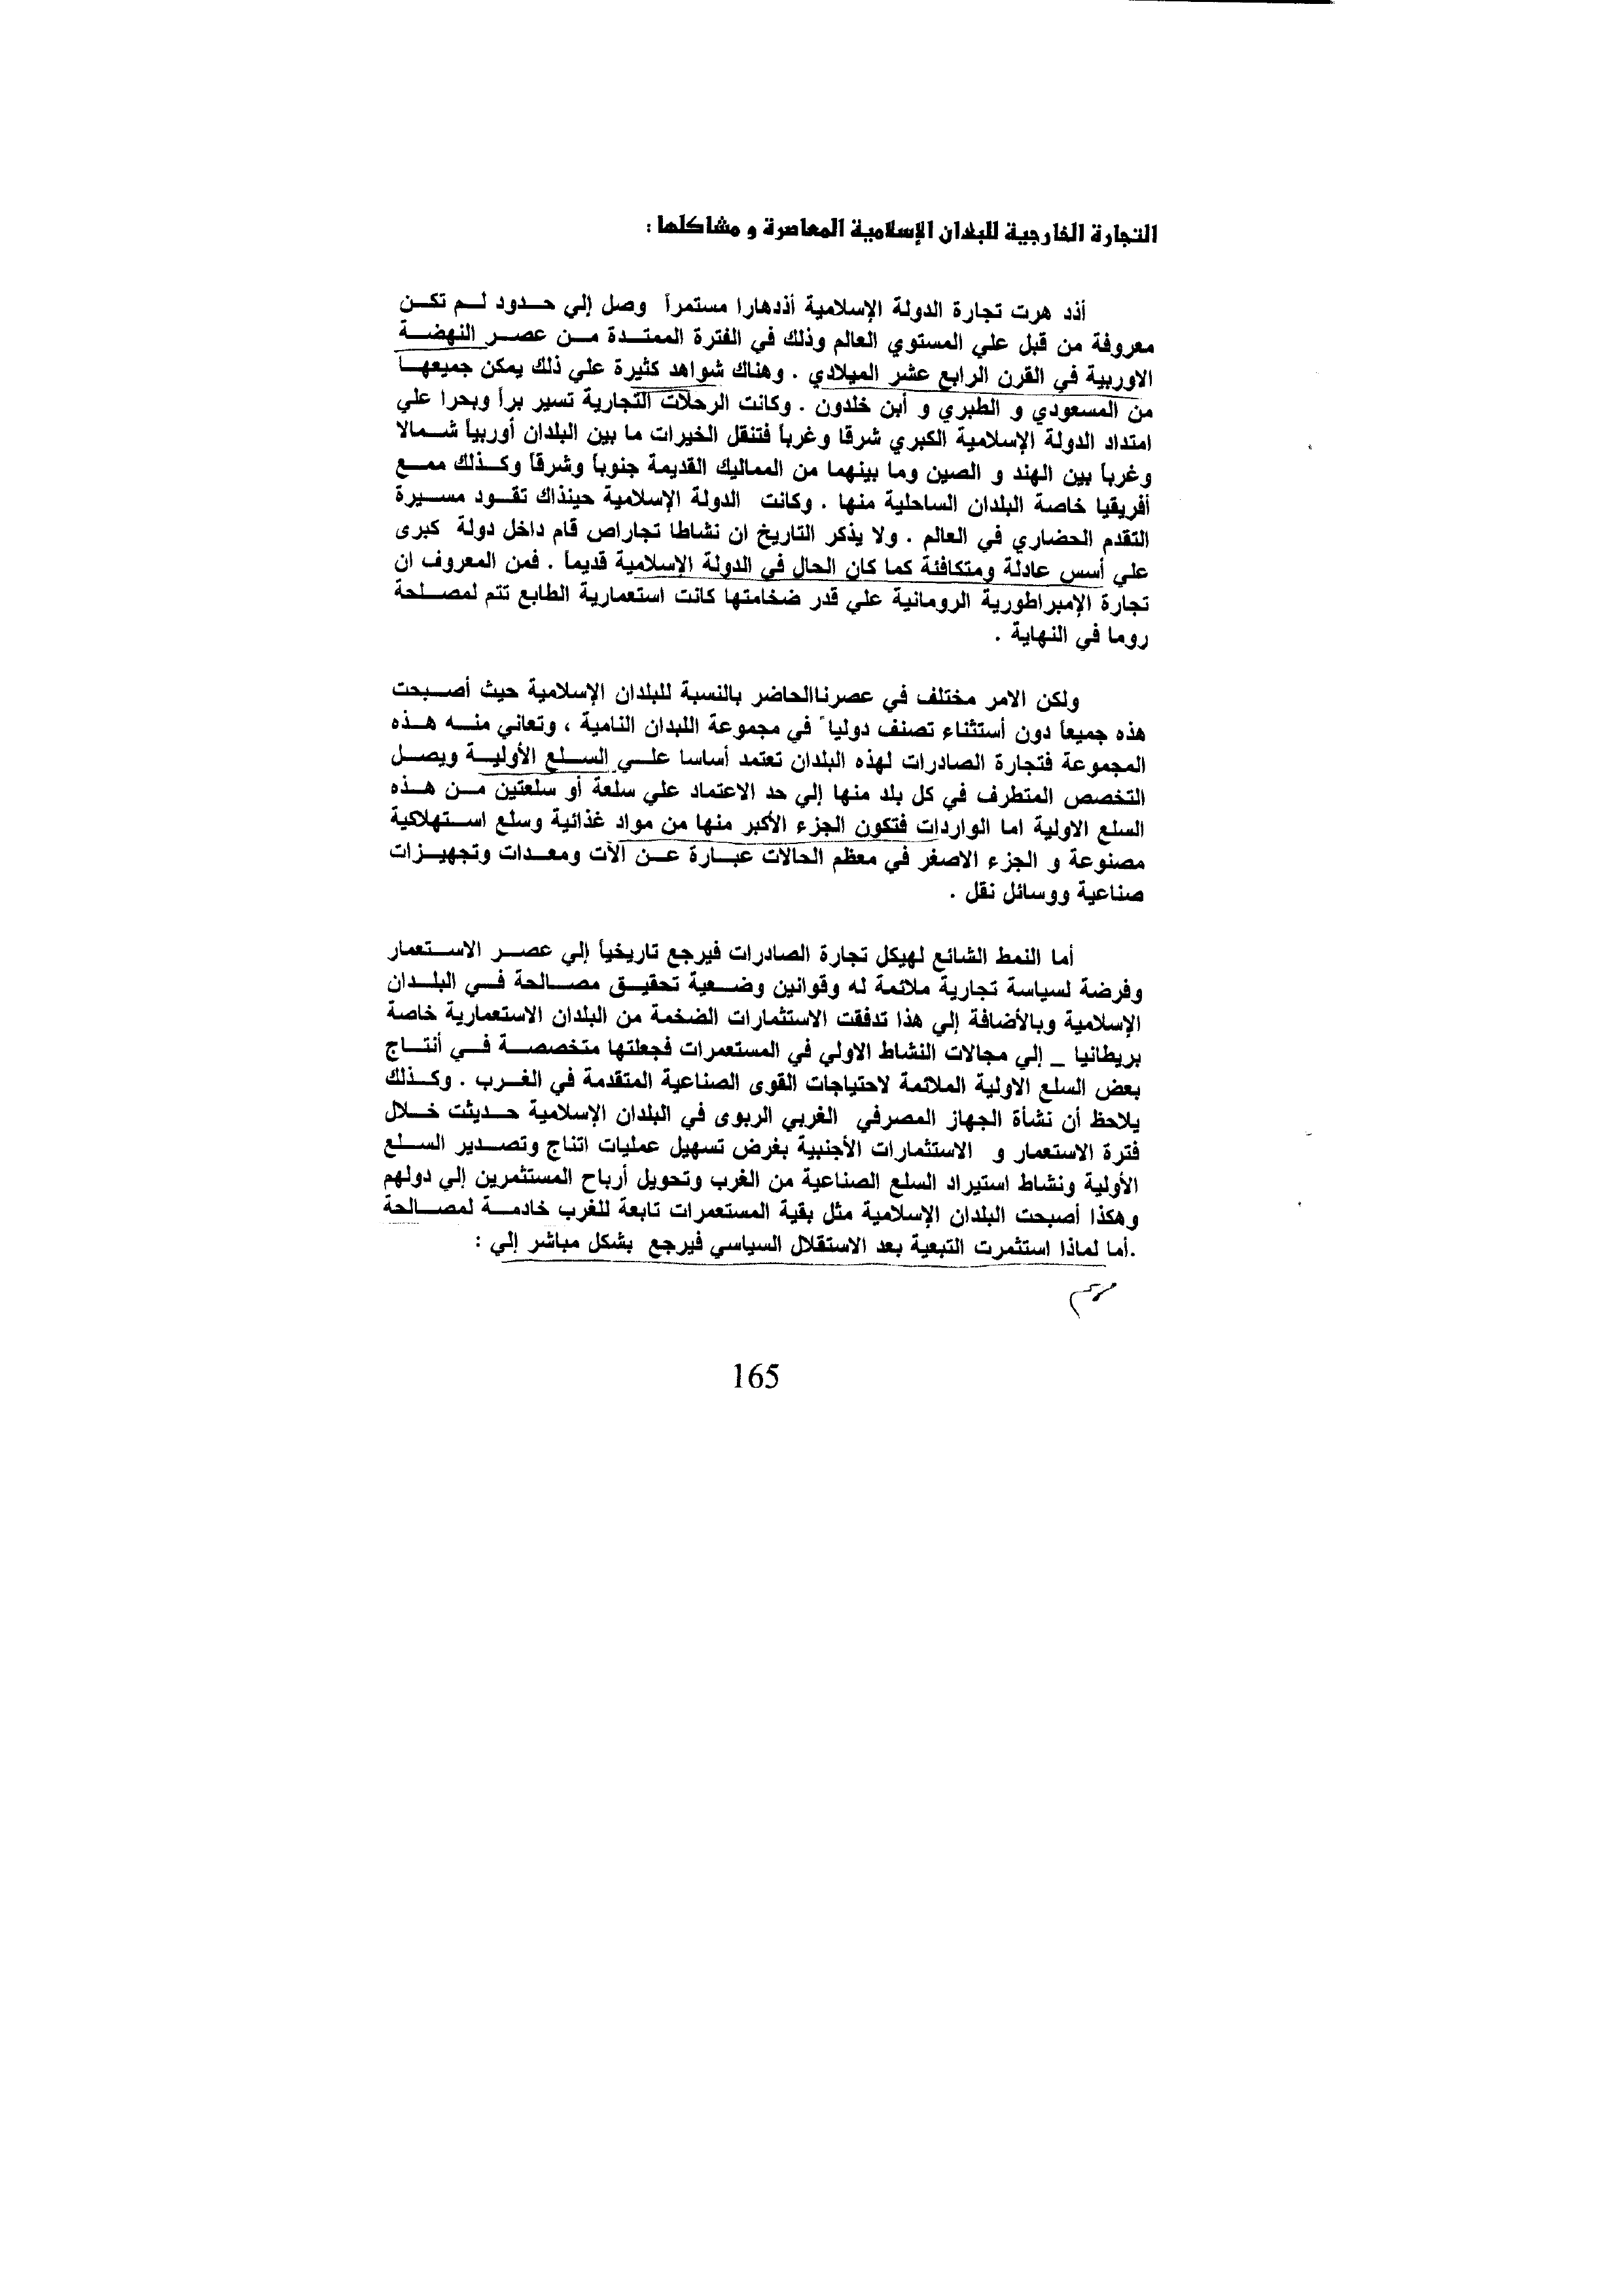 التجارة الخارجية للبلدان الإسلامية المعاصرة و مشاكلها :
أذد هرت تجارة الدولة الإسلامية أذدهارا مستمراً وصل إلي حدود لم تكن
معروفة من قبل علي المستوي العالم وذلك في الفترة الممتدة من عصر النهضة
الاوربية في القرن الرابع عشر الميلادي . وهناك شواهد كثيرة علي ذلك يمكن جميعها
من المسعودي و الطبري و أبن خلدون . وكانت الرحلات التجارية تسير براً وبحرا علي
امتداد الدولة الإسلامية الكبري شرقا وغرباً فتنقل الخيرات ما بين البلدان أوربياً شمالا
وغرباً بين الهند و الصين وما بينهما من المماليك القديمة جنوباً وشرقاً وكذلك ممع
أفريقيا خاصة البلدان الساحلية منها . وكانت الدولة الإسلامية حينذاك تقود مسيرة
التقدم الحضاري في العالم . ولا يذكر التاريخ ان نشاطا تجاراص قام داخل دولة كبرى
علي أسس عادلة ومتكافئة كما كان الحال في الدولة الإسلامية قديماً . فمن المعروف ان
تجارة الإمبراطورية الرومانية علي قدر ضخامتها كانت استعمارية الطابع تتم لمصلحة
روما في النهاية .
ولكن الامر مختلف في عصرناالحاضر بالنسبة للبلدان الإسلامية حيث أصبحت
هذه جميعاً دون أستثناء تصنف دولياً في مجموعة اللبدان النامية ، وتعاني منه هذه
المجموعة فتجارة الصادرات لهذه البلدان تعتمد أساسا علي السلع الأولية ويصل
التخصص المتطرف في كل بلد منها إلي حد الاعتماد علي سلعة أو سلعتين من هذه
السلع الاولية اما الواردات فتكون الجزء الأكبر منها من مواد غذائية وسلع استهلاكية
مصنوعة و الجزء الاصغر في معظم الحالات عبارة عن الآت ومعدات وتجهيزات
صناعية ووسائل نقل .
أما النمط الشائع لهيكل تجارة الصادرات فيرجع تاريخياً إلي عصر الاستعمار
وفرضة لسياسة تجارية ملائمة له وقوانين وضعية تحقيق مصالحة في البلدان
الإسلامية وبالأضافة إلي هذا تدفقت الاستثمارات الضخمة من البلدان الاستعمارية خاصة
بريطانيا _ إلي مجالات النشاط الاولي في المستعمرات فجعلتها متخصصة في أنتاج
بعض السلع الاولية الملائمة لاحتياجات القوى الصناعية المتقدمة في الغرب . وكذلك
يلاحظ أن نشأة الجهاز المصرفي الغربي الربوى في البلدان الإسلامية حديثت خلال
فترة الاستعمار و الاستثمارات الأجنبية بغرض تسهيل عمليات اتناج وتصدير السلع
الأولية ونشاط استيراد السلع الصناعية من الغرب وتحويل أرباح المستثمرين إلي دولهم
وهكذا أصبحت البلدان الإسلامية مثل بقية المستعمرات تابعة للغرب خادمة لمصالحة
.أما لماذا استثمرت التبعية بعد الاستقلال السياسي فيرجع بشكل مباشر إلي :
165